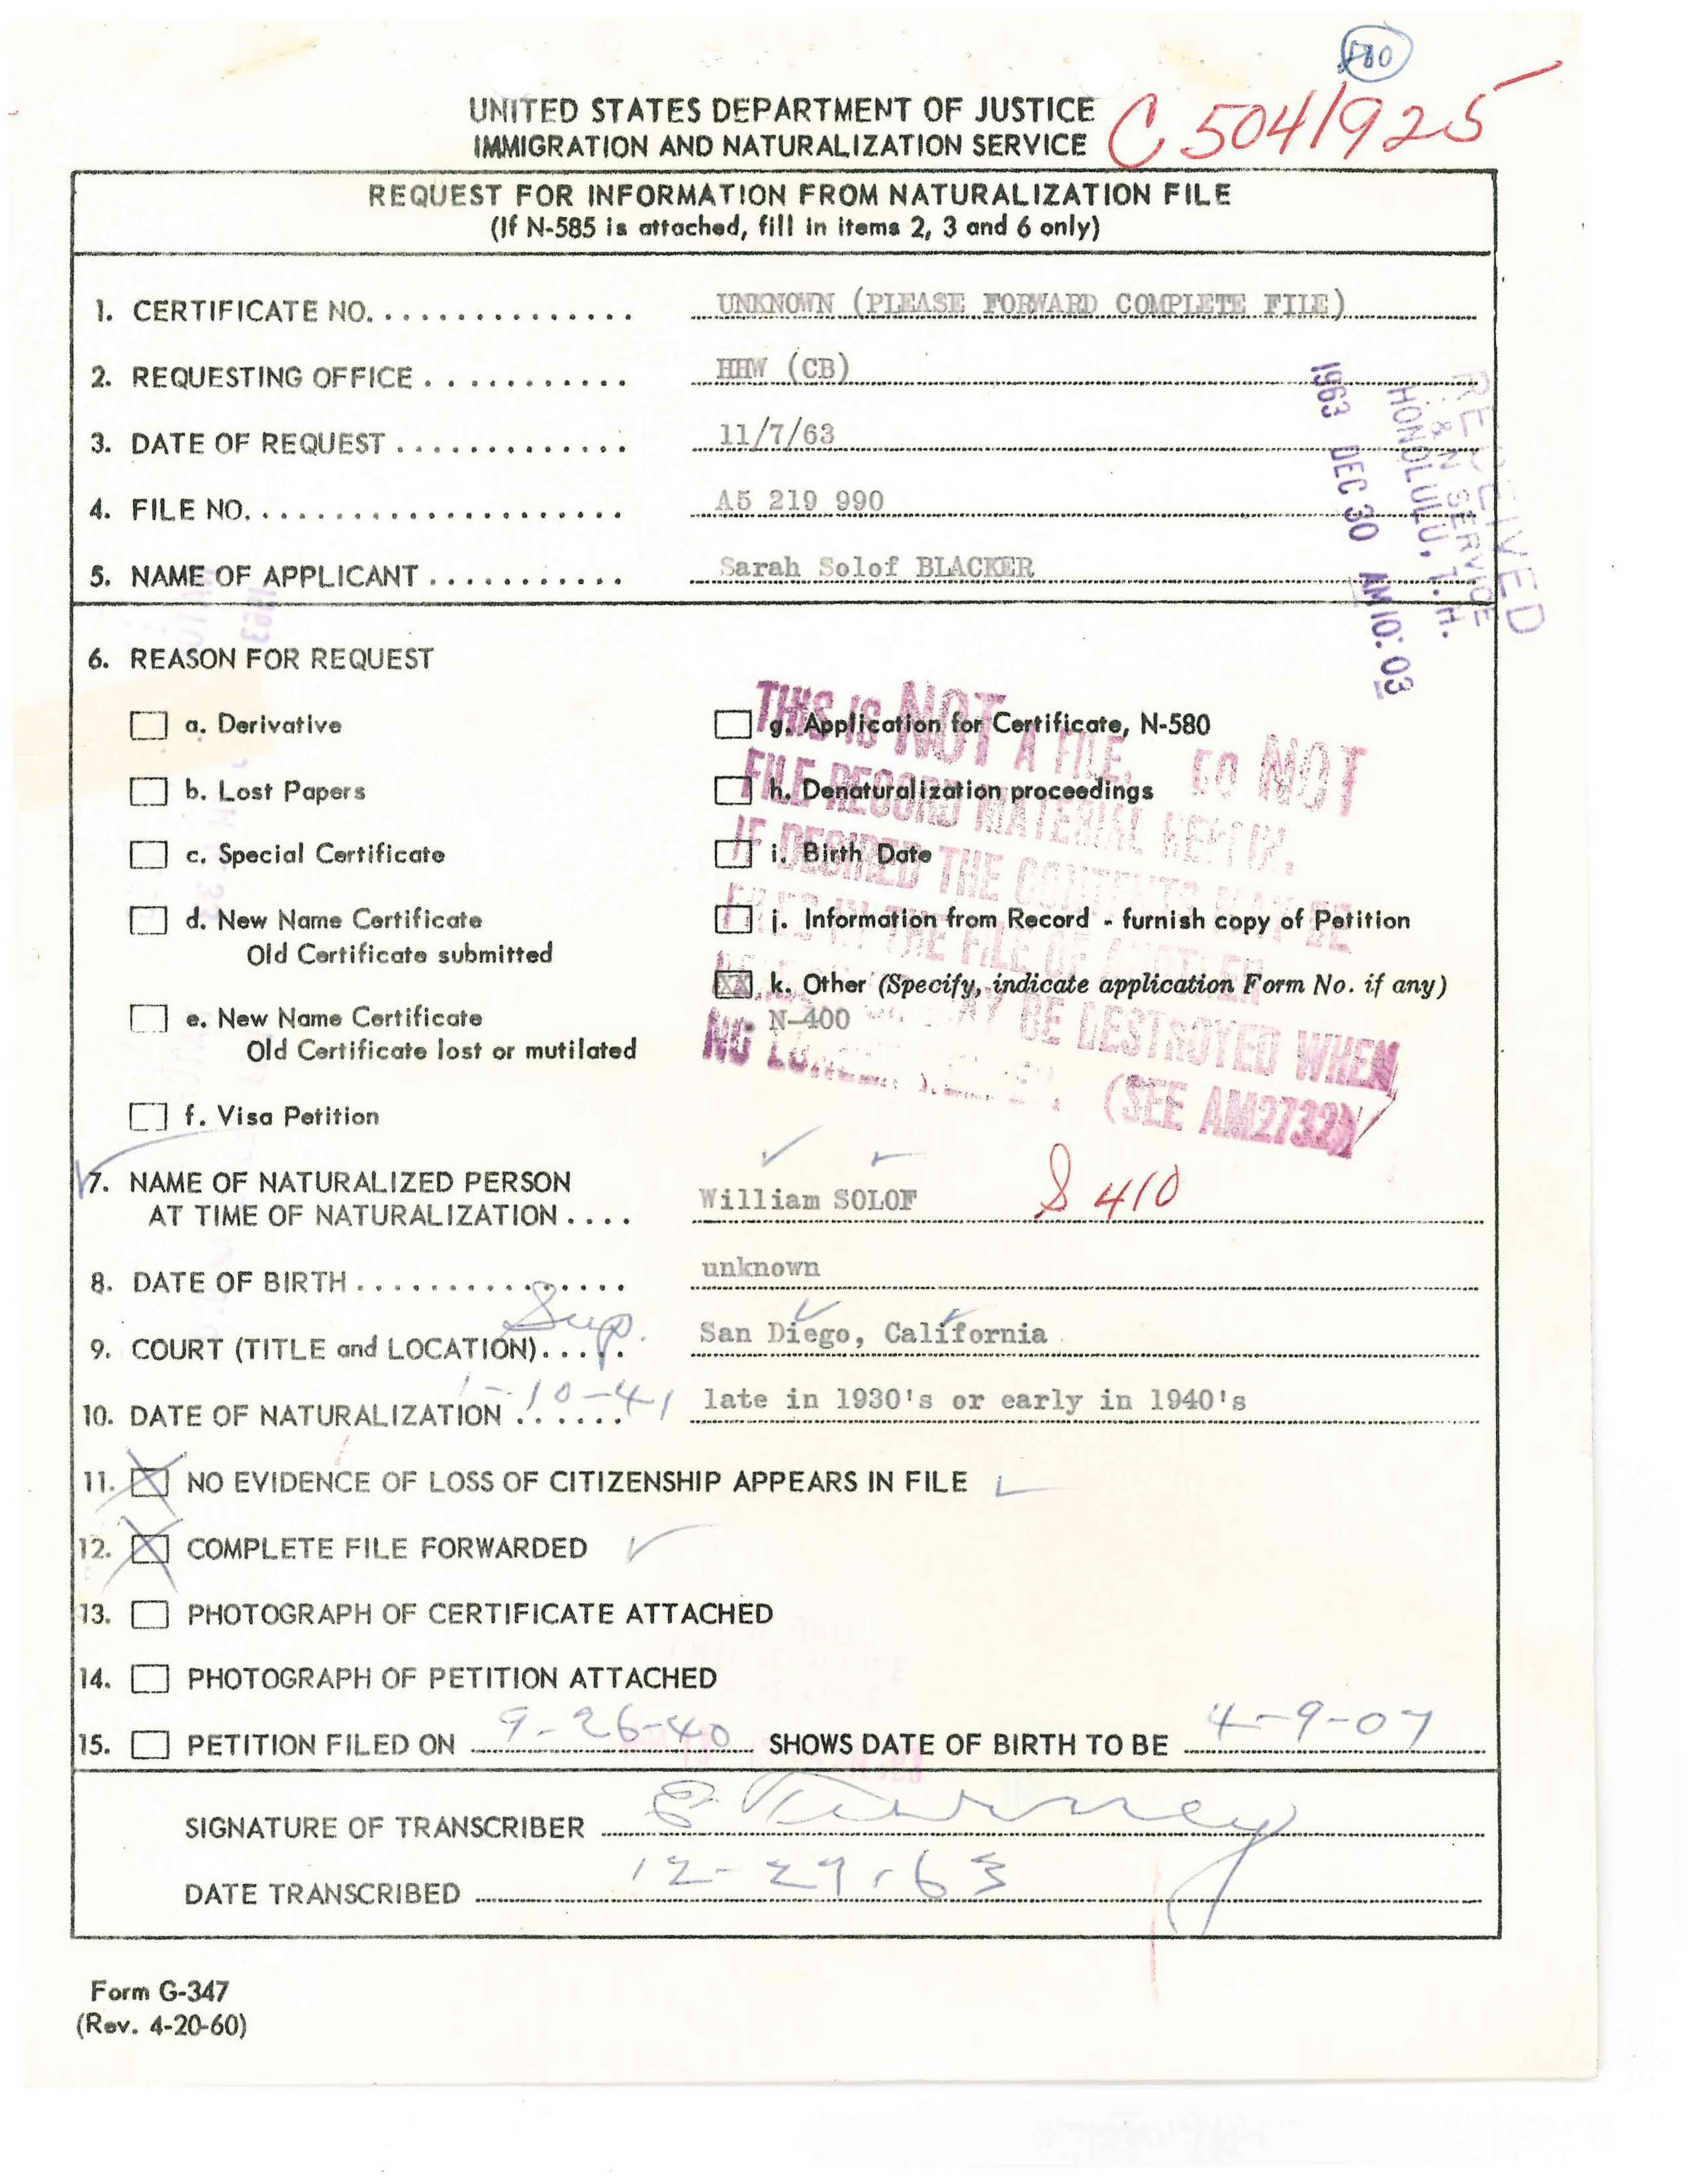 580
UNITED STATES DEPARTMENT OF JUSTICE
IMMIGRATION AND NATURALIZATION SERVICE
C 5041925
REQUEST FOR INFORMATION FROM NATURALIZATION FILE
(If N-585 is attached, fill in items 2, 3 and 6 only)
1. CERTIFICATE NO. ............... UNKNOWN (PLEASE FORWARD COMPLETE FILE)
2. REQUESTING OFFICE ........... HHW (CB)
3. DATE OF REQUEST ............. 11/7/63
4. FILE NO. ..................... A5 219 990
5. NAME OF APPLICANT ........... Sarah Solof BLACKER
RECEIVED
I. & N SERVICE
HONOLULU, T.H.
1963 DEC 30 AM 10: 03
6. REASON FOR REQUEST
a. Derivative
b. Lost Papers
c. Special Certificate
d. New Name Certificate
Old Certificate submitted
e. New Name Certificate
Old Certificate lost or mutilated
f. Visa Petition
g. Application for Certificate, N-580
h. Denaturalization proceedings
i. Birth Date
j. Information from Record - furnish copy of Petition
XX k. Other (Specify, indicate application Form No. if any)
N-400
THIS IS NOT A FILE. DO NOT
FILE RECORD MATERIAL HEREIN.
IF DESIRED THE CONTENTS MAY BE
FILED IN THE FILE OF ANOTHER
MAY BE DESTROYED WHEN
NO LONGER
(SEE AM2732)
7. NAME OF NATURALIZED PERSON
AT TIME OF NATURALIZATION .... William SOLOF S 410
8. DATE OF BIRTH ................ unknown
9. COURT (TITLE and LOCATION)..... Sup. San Diego, California
10. DATE OF NATURALIZATION ...... 1-10-41 late in 1930's or early in 1940's
11. NO EVIDENCE OF LOSS OF CITIZENSHIP APPEARS IN FILE
12. COMPLETE FILE FORWARDED
13. PHOTOGRAPH OF CERTIFICATE ATTACHED
14. PHOTOGRAPH OF PETITION ATTACHED
15. PETITION FILED ON 9-26-40 SHOWS DATE OF BIRTH TO BE 4-9-07
SIGNATURE OF TRANSCRIBER
DATE TRANSCRIBED 12-27-63
Form G-347
(Rev. 4-20-60)